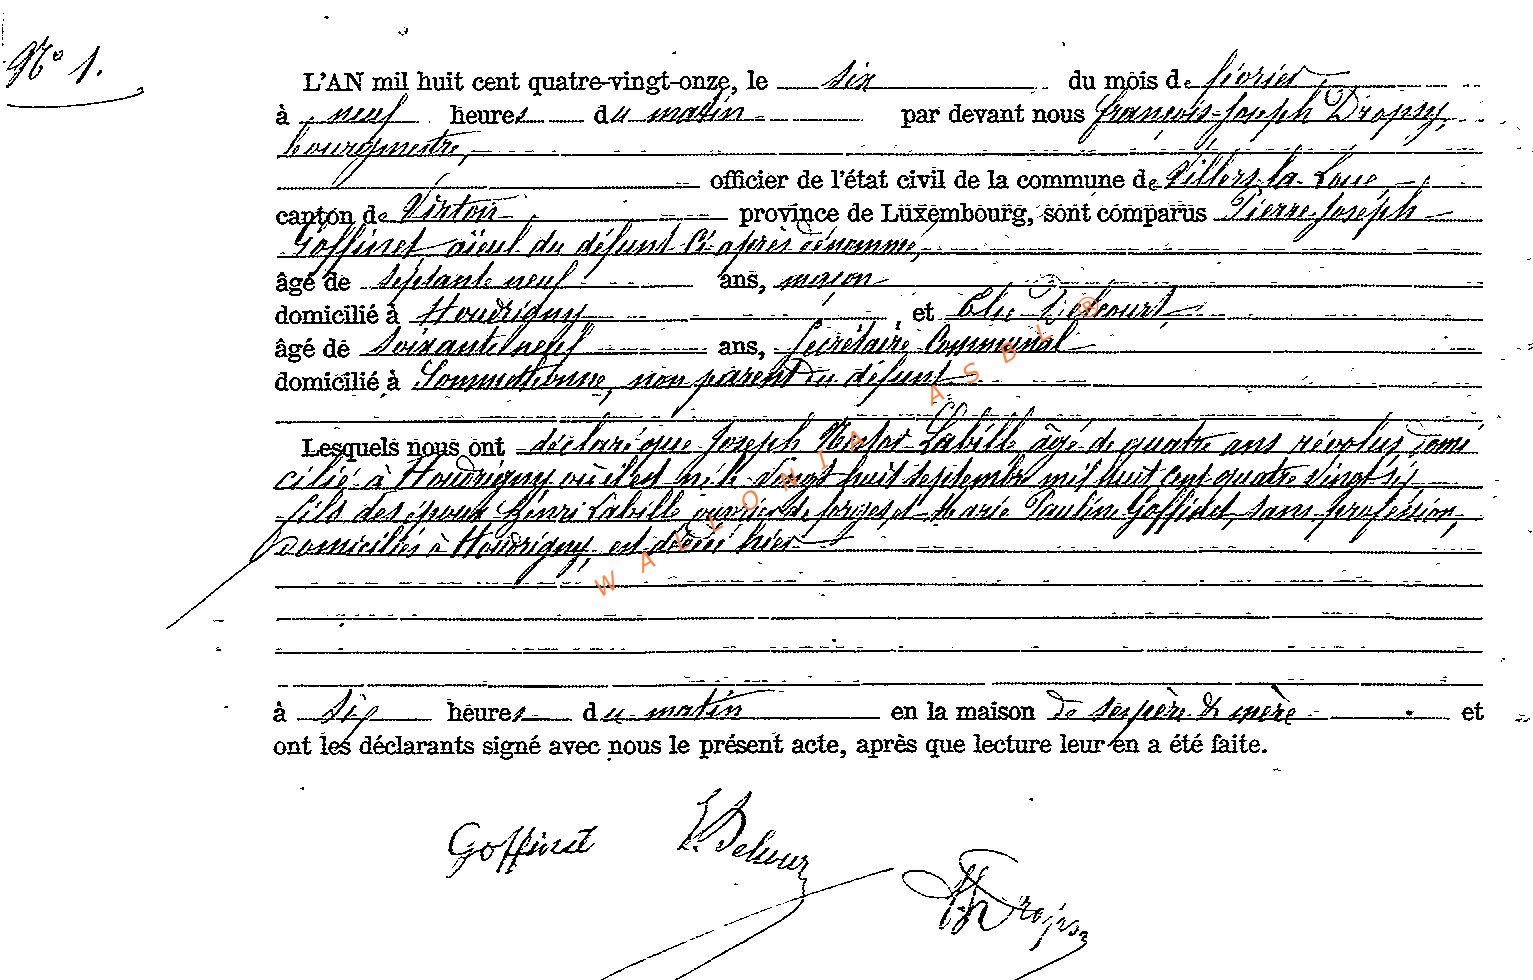 N° 1.
L'AN mil huit cent quatre-vingt-onze, le six du mois de février
à neuf heures du matin par devant nous françois-Joseph Dropsy,
bourgmestre,
officier de l'état civil de la commune de Villers-la-Loue,
canton de Virton province de Luxembourg, sont comparus Pierre Joseph
Goffinet aïeul du défunt ci-après dénommé,
âgé de septante neuf ans, maçon
domicilié à Houdrigny et Elie Delcourt,
âgé de soixante neuf ans, Secrétaire Communal
domicilié à Sommethonne, non parent du défunt
Lesquels nous ont déclaré que Joseph Labille âgé de quatre ans révolus domi
cilié à Houdrigny où il est né le vingt huit septembre mil huit cent quatre vingt six
fils des époux Henri Labille ouvrier de forges et Marie Pauline Goffinet, sans profession,
domiciliés à Houdrigny, est décédé hier
WALLONIA ASBL ®
à six heures du matin en la maison de ses père & mère et
ont les déclarants signé avec nous le présent acte, après que lecture leur en a été faite.
Goffinet E. Delcour
Dropsy